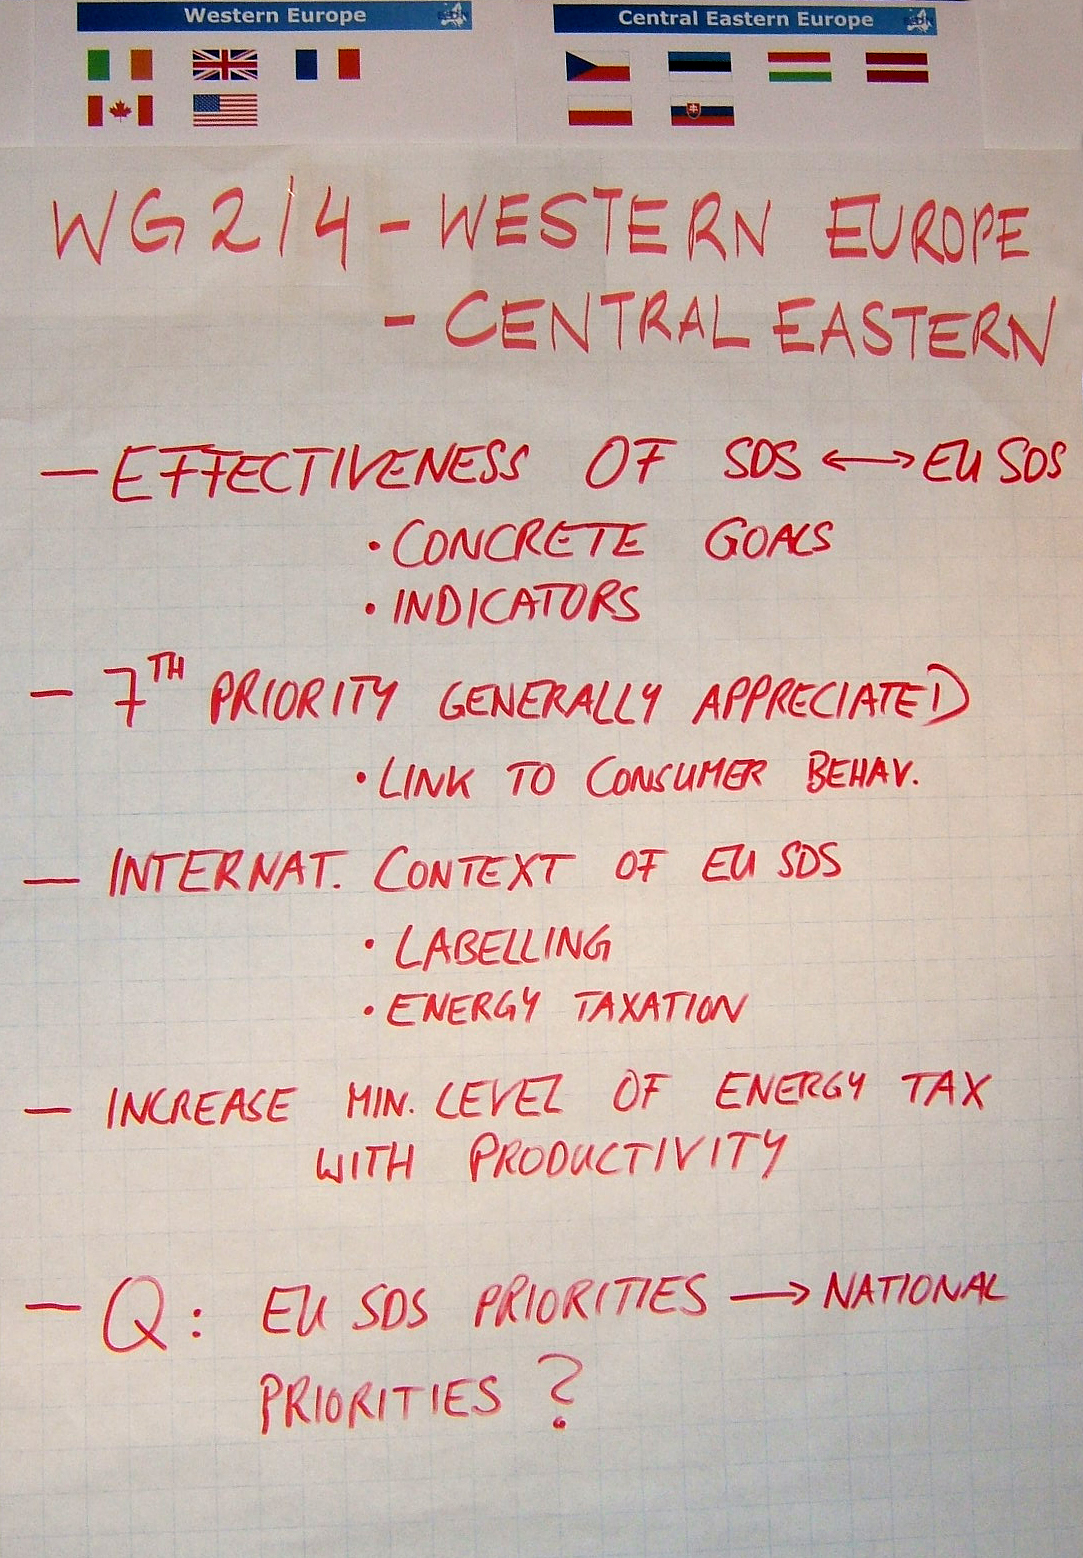 Western Europe
Central Eastern Europe
WG 2/4 - WESTERN EUROPE
- CENTRAL EASTERN
— EFFECTIVENESS OF SDS ⟷ EU SDS
• CONCRETE GOALS
• INDICATORS
— 7TH PRIORITY GENERALLY APPRECIATED
• LINK TO CONSUMER BEHAV.
— INTERNAT. CONTEXT OF EU SDS
• LABELLING
• ENERGY TAXATION
— INCREASE MIN. LEVEL OF ENERGY TAX
WITH PRODUCTIVITY
— Q: EU SDS PRIORITIES ⟶ NATIONAL
PRIORITIES ?